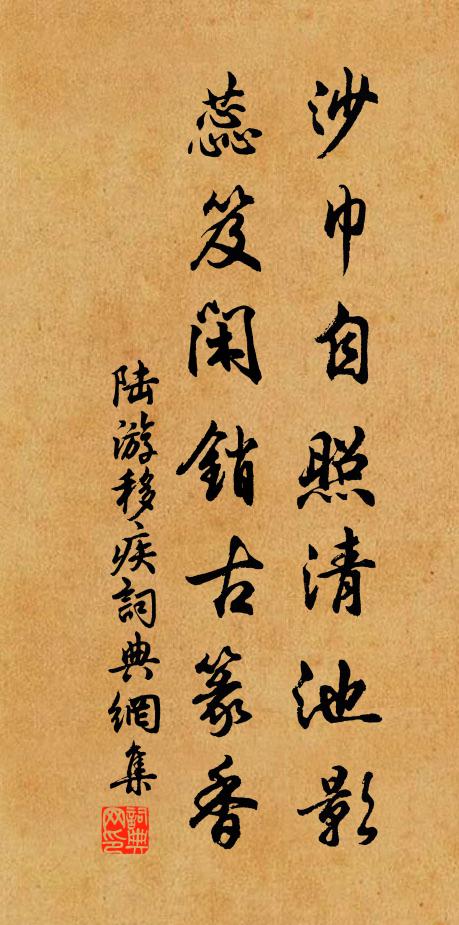 沙巾自照清池影
蕊笈閑銷古篆香
陆游移疾詞典網集
詞典网印